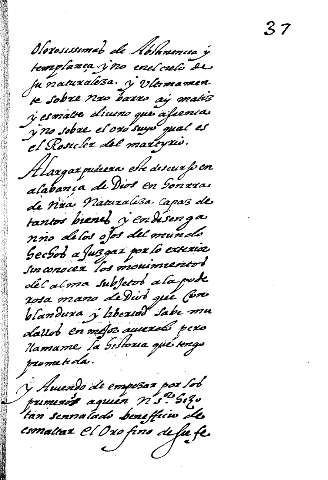 37
olorosissimos de Abstinencia y
templança y no en el cielo de
su naturaleza. y Ultimamen-
te sobre nro barro ay matiz
y esmalte divino que assienta
y no sobre el oro suyo qual es
el Rosicler del martyrio.
Alargar pudiera este discurso en
alabança de Dios en honrra
de nra Naturaleza capaz de
tantos bienes y en desenga
nño de los ojos del mundo
hechos a Juzgar por lo exterior
sin conocer los movimientos
del alma subjetos a la pode
rosa mano de Dios que con
blandura y libertad sabe mu
darlos en mejor pero
llamame la historia que tengo
prometida.
y Aviendo de empezar por los
primeros a quien N. Sr. hizo
tan sennalado beneficio de
esmaltar el Oro fino de su fe